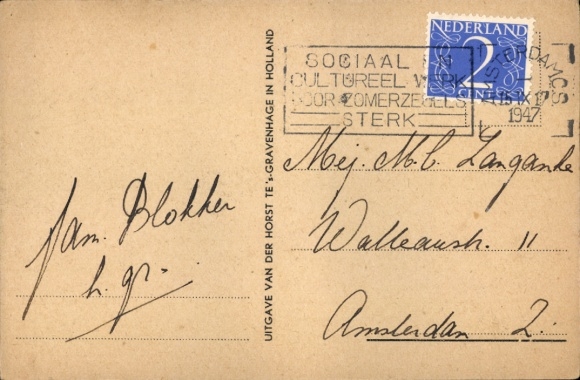 NEDERLAND
2
CENT
SOCIAAL EN
CULTUREEL WERK
DOOR ZOMERZEGELS
STERK
AMSTERDAM CS
15 IX 17
1947
Mej. M. C. Langanke
11
Amsterdam Z.
fam. Blokker
h. gr.
UITGAVE VAN DER HORST TE 's-GRAVENHAGE IN HOLLAND